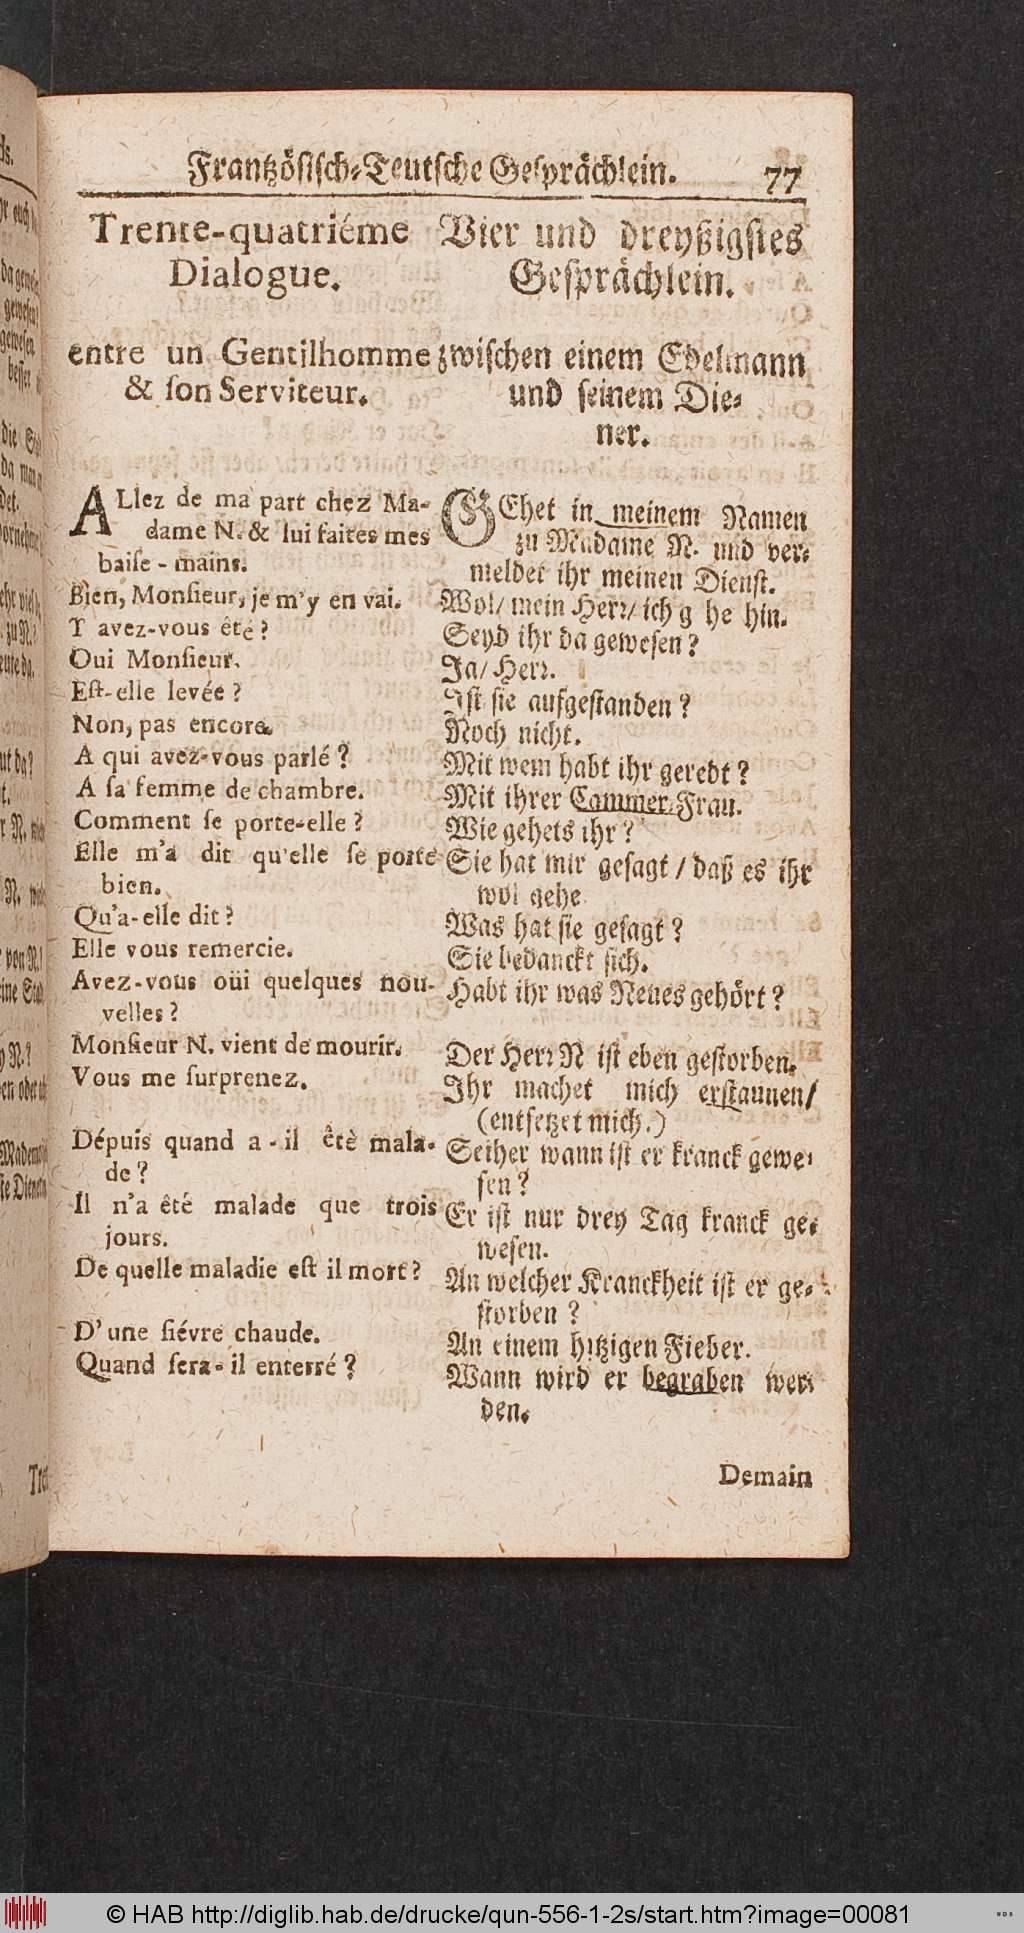 Frantzösisch-Teutsche Gesprächlein. 77
Trente-quatriéme
Dialogue.
entre un Gentilhomme
& ſon Serviteur.
ALlez de ma part chez Ma-
dame N. & lui faites mes
baiſe-mains.
Bien, Monſieur, je m'y en vai.
Y avez-vous êté?
Oui Monſieur.
Eſt-elle levée?
Non, pas encore.
A qui avez-vous parlé?
A ſa femme de chambre.
Comment ſe porte-elle?
Elle m'a dit qu'elle ſe porte
bien.
Qu'a-elle dit?
Elle vous remercie.
Avez-vous oüi quelques nou-
velles?
Monſieur N. vient de mourir.
Vous me ſurprenez.
Dépuis quand a-il êtè mala-
de?
Il n'a êté malade que trois
jours.
De quelle maladie eſt il mort?
D'une fiévre chaude.
Quand ſera-il enterré?
Vier und dreyßigſtes
Geſprächlein.
zwiſchen einem Edelmann
und ſeinem Die-
ner.
GEhet in meinem Namen
zu Madame N. und ver-
meldet ihr meinen Dienſt.
Wol/ mein Herr/ ich g he hin.
Seyd ihr da geweſen?
Ja/ Herr.
Iſt ſie aufgeſtanden?
Noch nicht.
Mit wem habt ihr geredt?
Mit ihrer Cammer-Frau.
Wie gehets ihr?
Sie hat mir geſagt/ daß es ihr
wol gehe
Was hat ſie geſagt?
Sie bedanckt ſich.
Habt ihr was Neues gehört?
Der Herr N iſt eben geſtorben.
Ihr machet mich erſtaunen/
(entſetzet mich.)
Seither wann iſt er kranck gewe-
ſen?
Er iſt nur drey Tag kranck ge-
weſen.
An welcher Kranckheit iſt er ge-
ſtorben?
An einem hitzigen Fieber.
Wann wird er begraben wer-
den.
Demain
© HAB http://diglib.hab.de/drucke/qun-556-1-2s/start.htm?image=00081